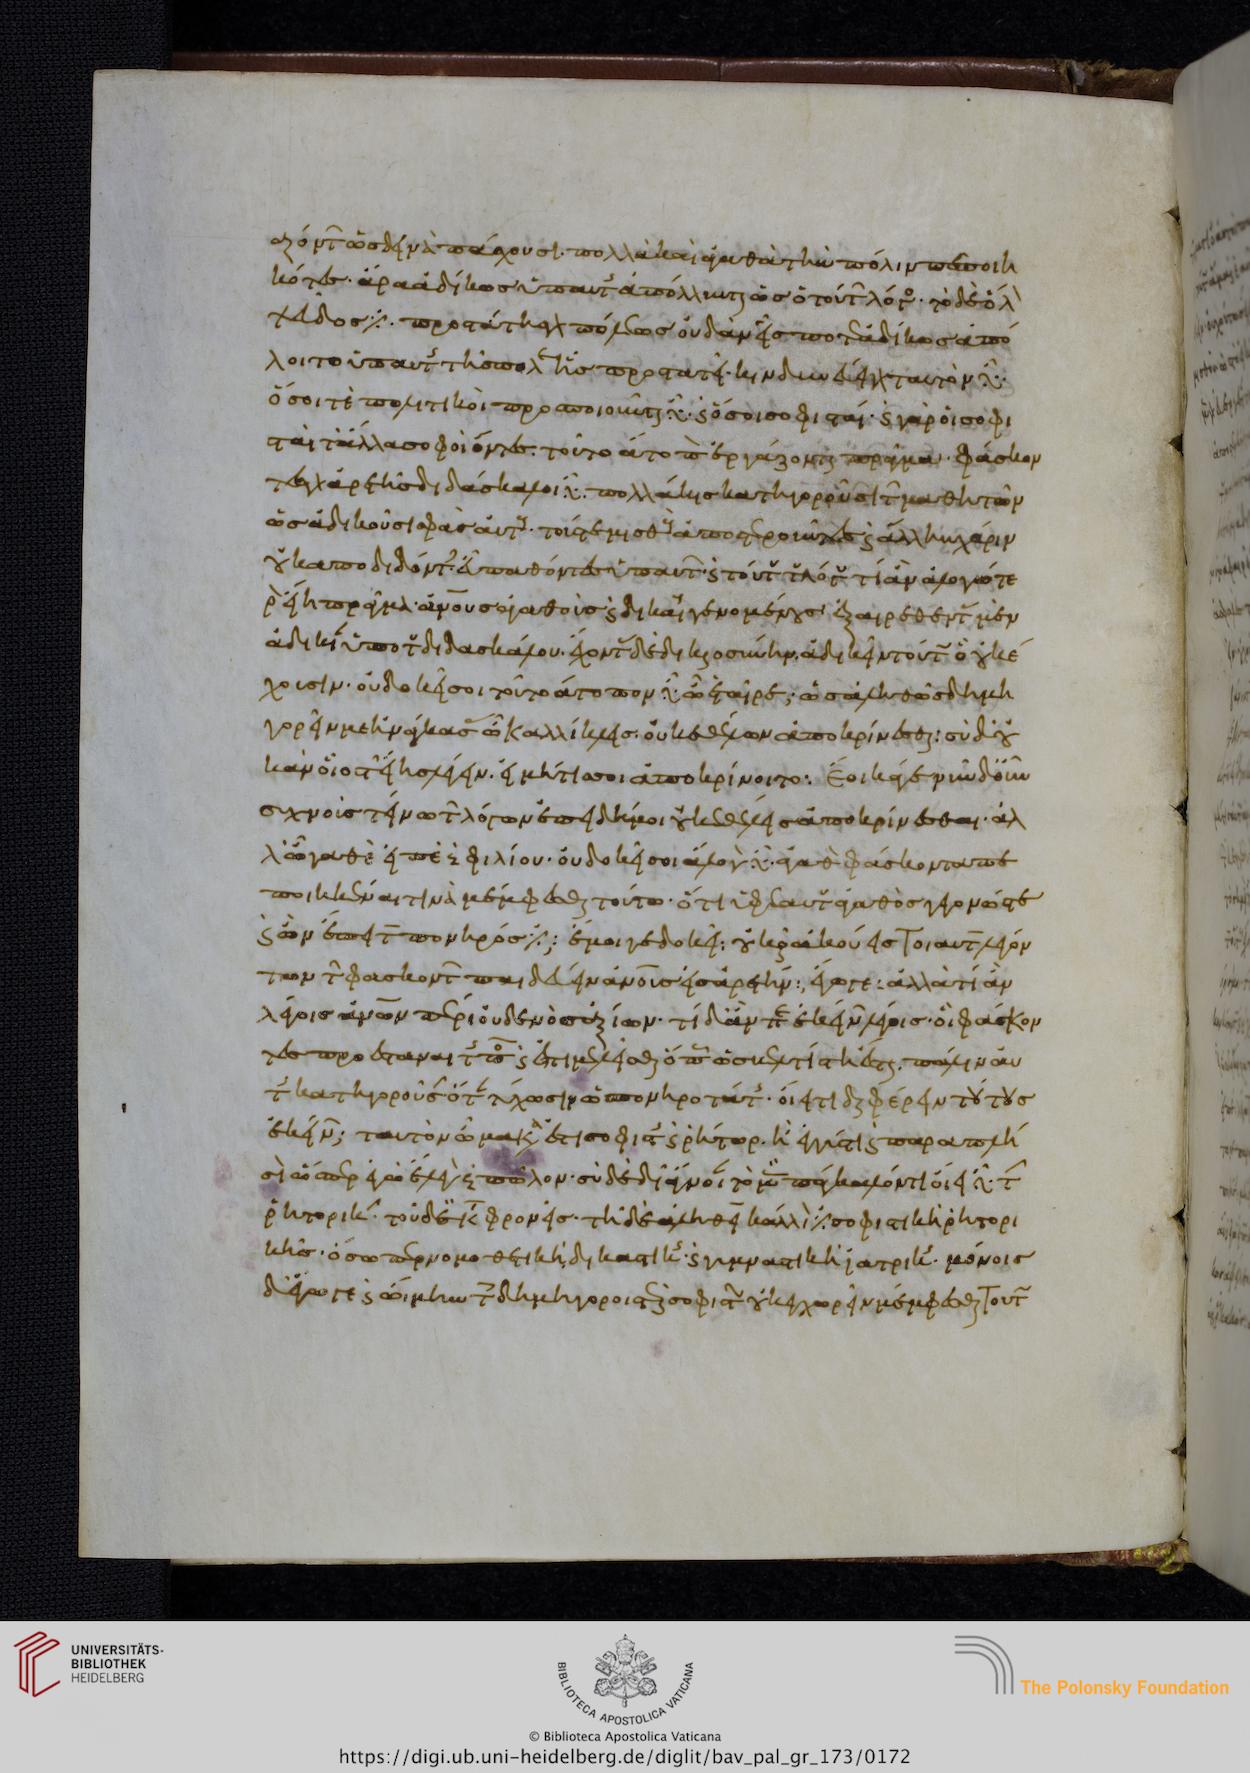 ζόντων ὡς δεινὰ πάσχουσι· πολλὰ καὶ ἀγαθὰ τὴν πόλιν πεποιη
κότες· ἄρα ἀδίκως ὑπ αὐτῆς ἀπόλλυνται ὡς ὁ τούτων λόγος· τὸ δὲ ὅλον
ψεῦδος ἐστι· προστάτης γὰρ πόλεως οὐδ ἂν εἷς ποτε ἀδίκως ἀπό
λοιτο ὑπ αὐτῆς τῆς πόλεως ἧς προστατεῖ· κινδυνεύει γὰρ ταυτὸν εἶναι·
ὅσοι τὲ πολιτικοὶ προσποιοῦνται εἶναι· καὶ ὅσοι σοφισταί· καὶ γὰρ οἱ σοφι
σταὶ τἆλλα σοφοὶ ὄντες· τοῦτο ἄτοπον ἐργάζονται πρᾶγμα· φάσκον
τες γὰρ ἀρετῆς διδάσκαλοι εἶναι· πολλάκις κατηγοροῦσι τῶν μαθητῶν
ὡς ἀδικοῦσι σφᾶς αὐτούς· τούς τε μισθοὺς ἀποστεροῦντες καὶ ἄλλην χάριν
οὐκ ἀποδιδόντες εὖ παθόντες ὑπ αὐτῶν· καὶ τούτου τοῦ λόγου τί ἂν ἀλογώτε
ρον εἴη πρᾶγμα· ἀνθρώπους ἀγαθοὺς καὶ δικαίους γενομένους ἐξαιρεθέντας μὲν
ἀδικίαν ὑπὸ τοῦ διδασκάλου· σχόντας δὲ δικαιοσύνην· ἀδικεῖν τούτῳ ὃ οὐκ ἔ
χουσιν· οὐ δοκεῖ σοι τοῦτο ἄτοπον εἶναι ὦ ἑταῖρε; ὡς ἀληθῶς δημη
γορεῖν με ἠνάγκασας ὦ Καλλίκλεις· οὐκ ἐθέλων ἀποκρίνεσθαι: σὺ δ οὐ
κ ἂν οἷός τ εἴης λέγειν· εἰ μή τις σοι ἀποκρίνοιτο: Ἔοικά γε· νῦν δ οὖν
συχνοὺς τείνω τῶν λόγων ἐπειδή μοι οὐκ ἐθέλεις ἀποκρίνεσθαι· ἀλ
λ ὦ γαθὲ εἰπὲ πρὸς φιλίου· οὐ δοκεῖ σοι ἄλογον εἶναι· ἀγαθὸν φάσκοντα πε
ποιηκέναι τινὰ μέμφεσθαι τούτῳ· ὅτι ὑφ ἑαυτοῦ ἀγαθὸς γεγονώς τε
καὶ ὢν ἔπειτα πονηρός ἐστι; ἔμοιγε δοκεῖ: οὐκοῦν ἀκούεις τοιαῦτα λεγόν
των τῶν φασκόντων παιδεύειν ἀνθρώπους εἰς ἀρετήν: ἔγωγε: ἀλλὰ τί ἂν
λέγοις ἀνθρώπων πέρι οὐδενὸς ἀξίων· τί δ ἂν περὶ ἐκείνων λέγοις· οἳ φάσκον
τες προεστάναι τῆς πόλεως καὶ ἐπιμελεῖσθαι ὅπως ὡς βελτίστη ἔσται, πάλιν αὐ
τῆς κατηγοροῦσιν ὅταν τύχωσιν ὡς πονηροτάτης· οἴει τι διαφέρειν τούτους
ἐκείνων; ταυτὸν ὦ μακάριε ἐστὶ σοφιστὴς καὶ ῥήτωρ· ἢ ἐγγύς τι καὶ παραπλή
σιον ὥσπερ ἐγὼ ἔλεγον πρὸς πῶλον· σὺ δὲ δι ἄγνοιαν τὸ μὲν πάγκαλόν τι οἴει εἶναι τὴν
ῥητορικήν· τοῦ δὲ καταφρονεῖς· τῇ δὲ ἀληθείᾳ κάλλιόν ἐστι σοφιστικὴ ῥητορι
κῆς· ὅσῳπερ νομοθετικὴ δικαστικῆς· καὶ γυμναστικὴ ἰατρικῆς· μόνοις
δ ἔγωγε καὶ ᾤμην τοῖς δημηγόροις τε καὶ σοφισταῖς οὐκ ἐγχωρεῖν μέμφεσθαι τούτῳ
UNIVERSITÄTS-
BIBLIOTHEK
HEIDELBERG
BIBLIOTECA APOSTOLICA VATICANA
The Polonsky Foundation
© Biblioteca Apostolica Vaticana
https://digi.ub.uni-heidelberg.de/diglit/bav_pal_gr_173/0172